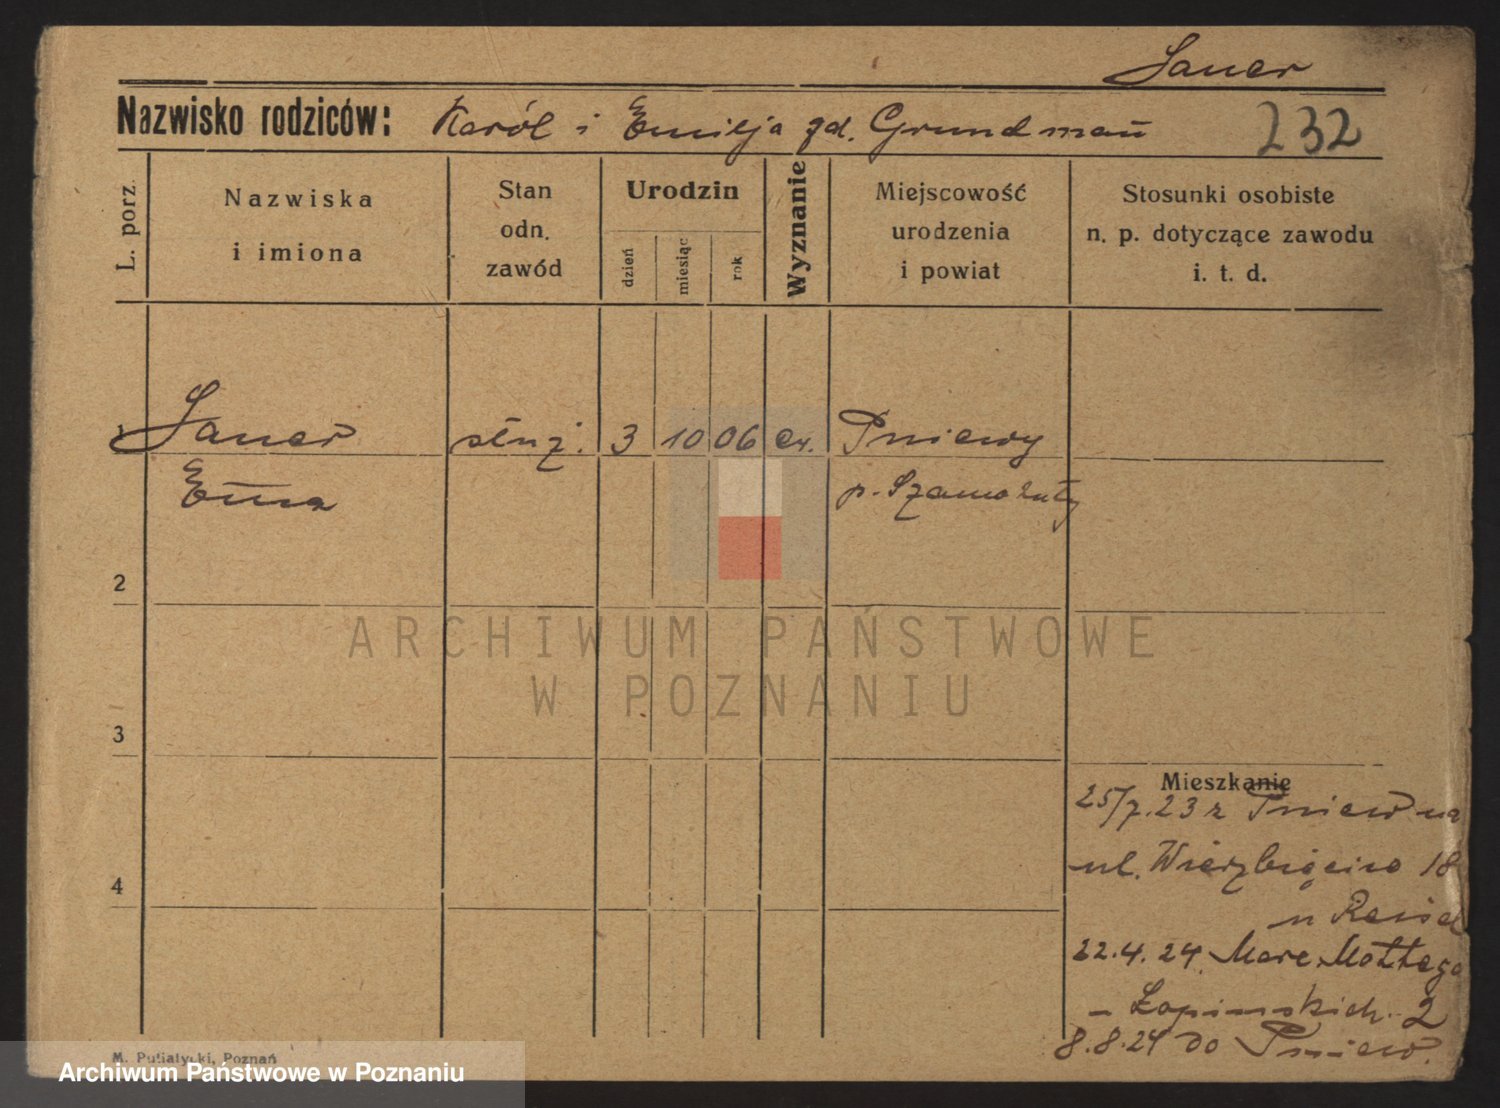 Sauer
Nazwisko rodziców: Karól i Emilja zd. Grundmañ 232
L. porz.
Nazwiska
i imiona
Stan
odn.
zawód
Urodzin
dzień
miesiąc
rok
Wyznanie
Miejscowość
urodzenia
i powiat
Stosunki osobiste
n. p. dotyczące zawodu
i. t. d.
1 Sauer służ. 3 10 06 ew. Pniewy
Em̄a p. Szamotuły
2
ARCHIWUM PAŃSTWOWE
W POZNANIU
3
Mieszkanie
25/7.23 z Pniew na
ul. Wierzbięcice 18
u
4
22.4.24. Marc. Mottego
- Łopinskich 2
8.8.24 do Pniew.
M. Putiatycki, Poznań
Archiwum Państwowe w Poznaniu